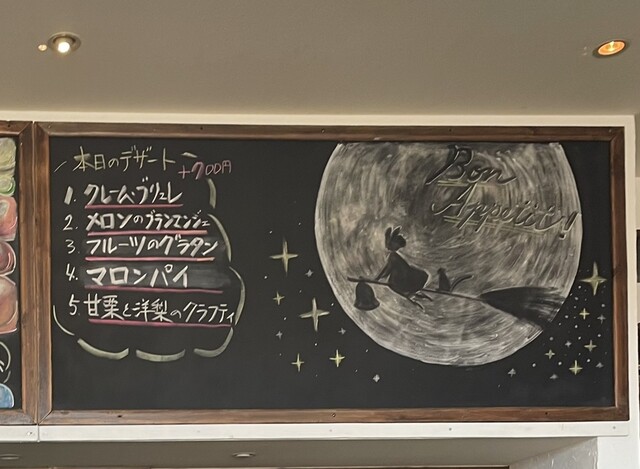 本日のデザート
+700円
1. クレームブリュレ
2. メロンのブランマンジェ
3 フルーツのグラタン
4. マロンパイ
5 甘栗と洋梨のクラフティ
Bon
Appétit!